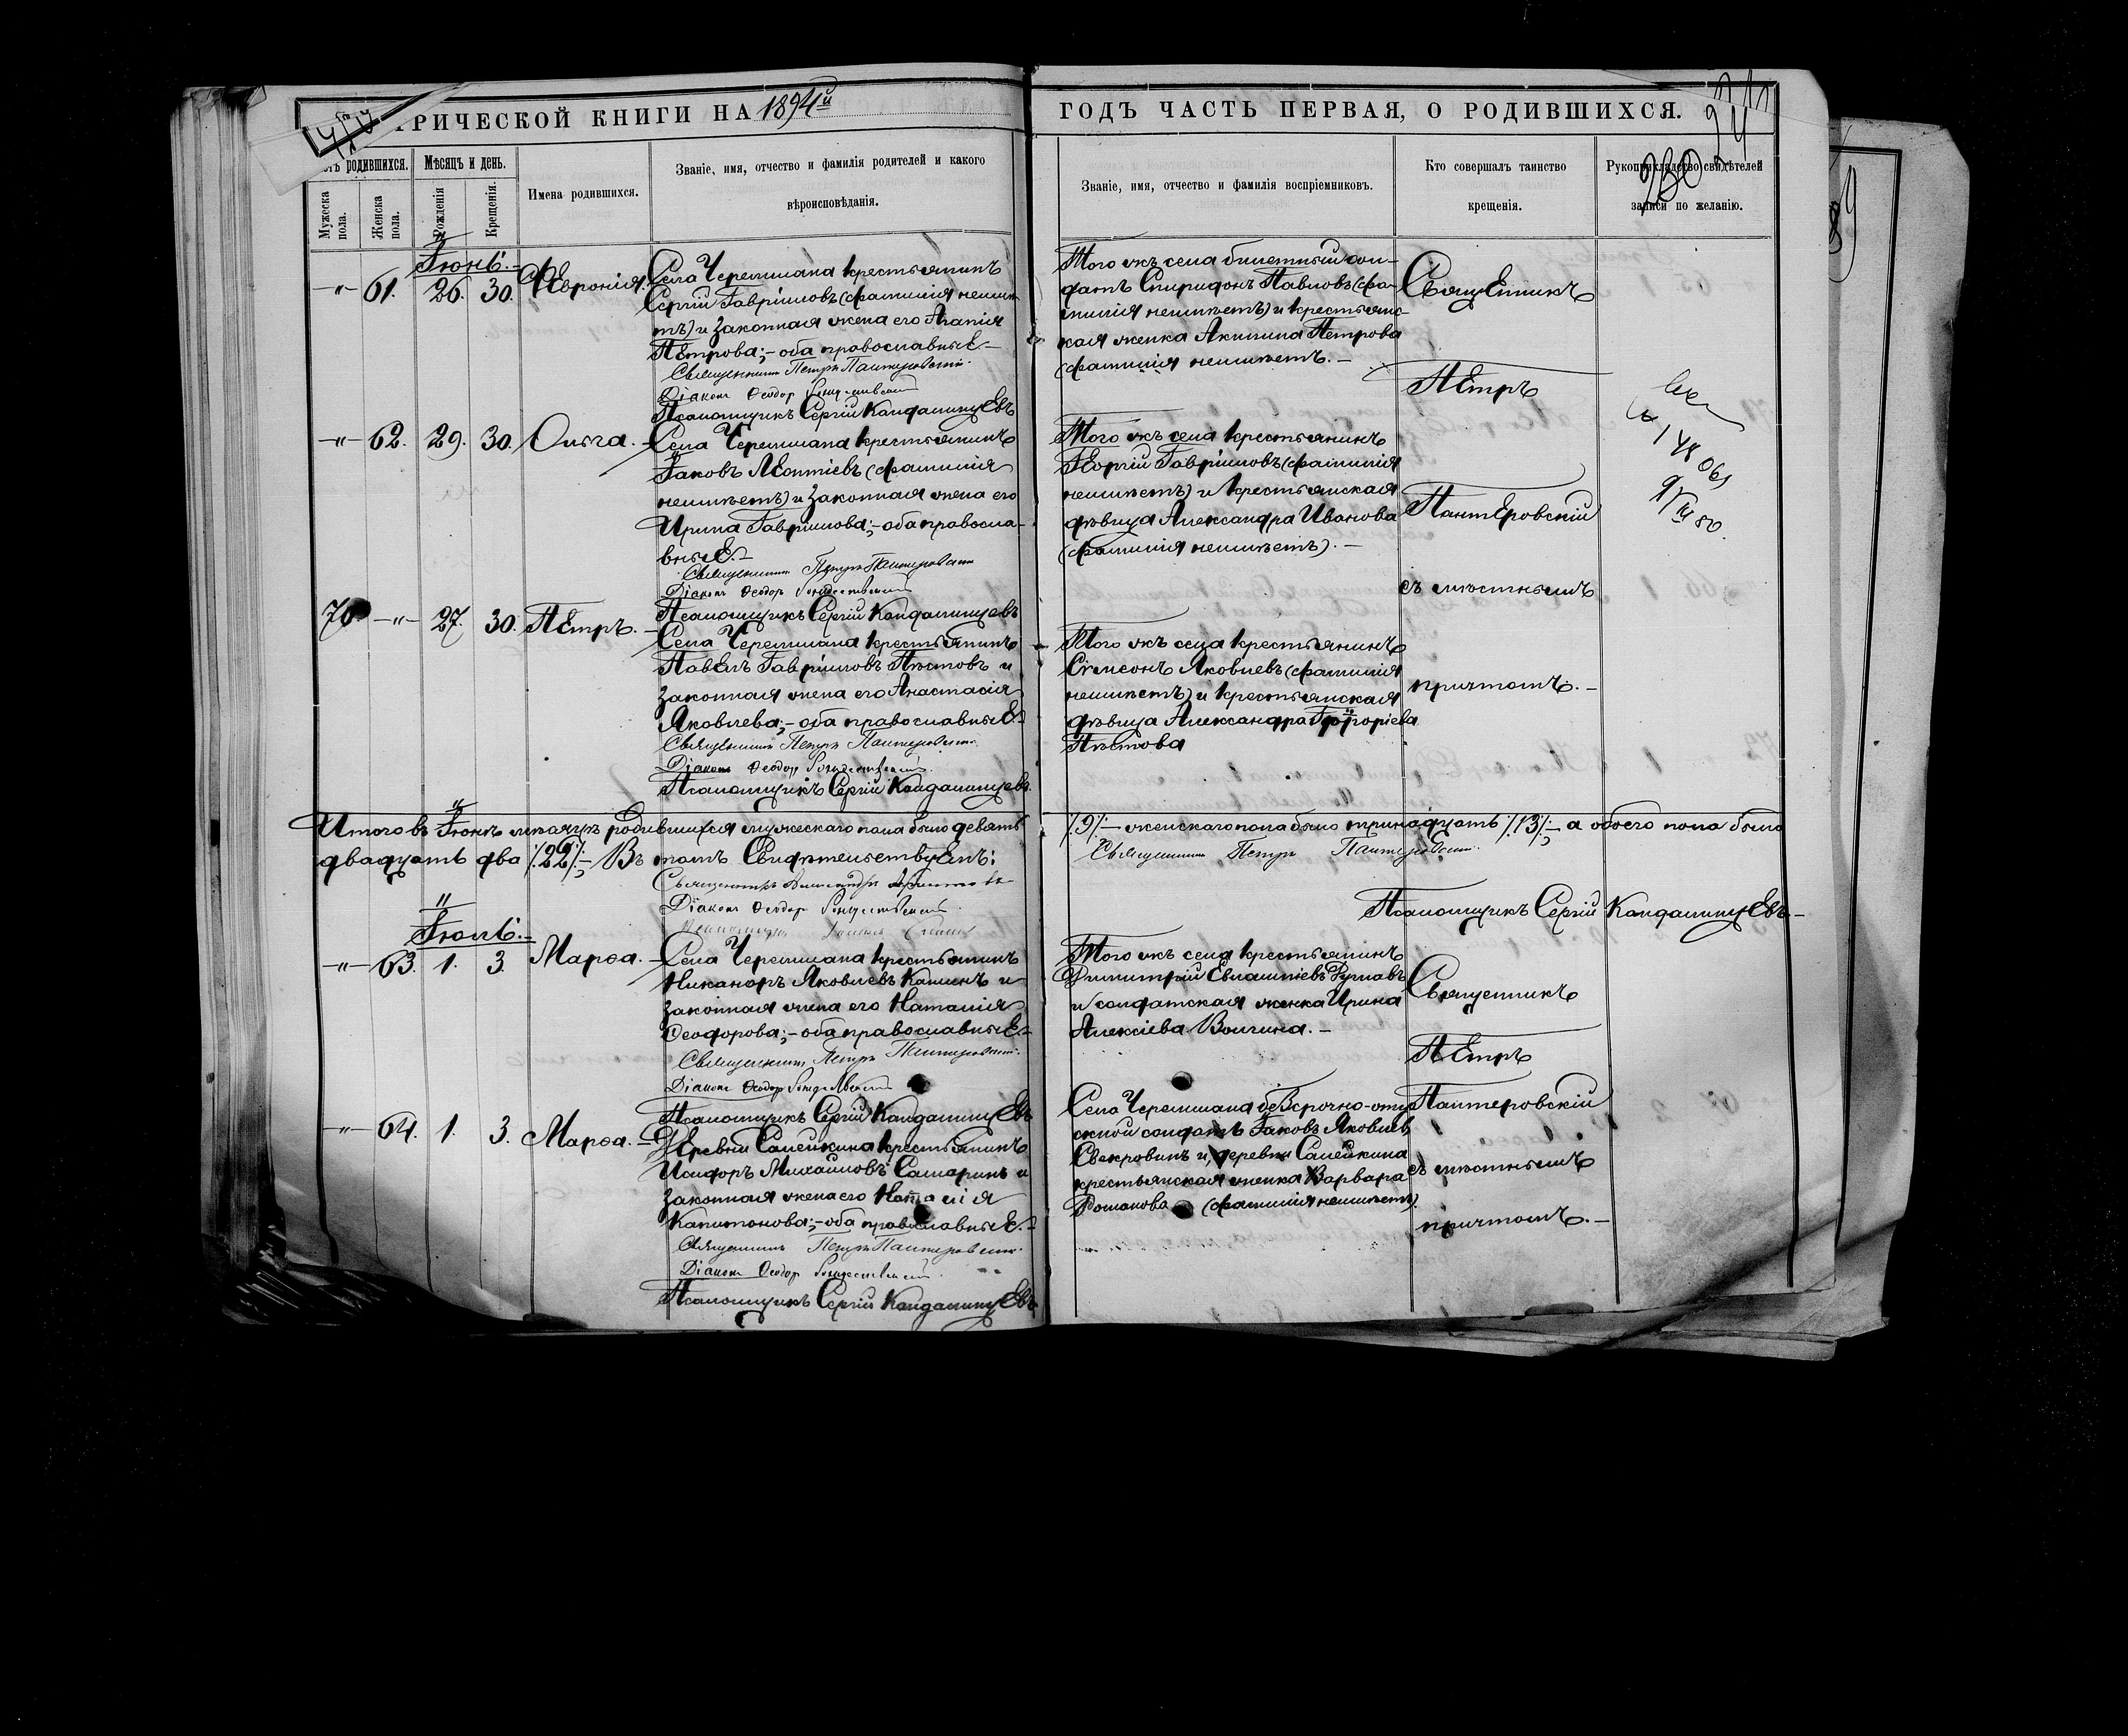 РИЧЕСКОЙ КНИГИ НА 1894й ГОДЪ ЧАСТЬ ПЕРВАЯ, О РОДИВШИХСЯ.
230
родившихся.
Мѣсяцъ и день.
Мужеска пола.
Женска пола.
Рожденія
Крещенія.
Имена родившихся.
Званіе, имя, отчество и фамилія родителей и какого
вѣроисповѣданія.
Званіе, имя, отчество и фамилія воспріемниковъ.
Кто совершалъ таинство
крещенія.
Рукоприкладство свидѣтелей
записи по желанію.
Іюнь.
-"- 61. 26. 30. Февронія.
Села Черемшана крестьянинъ
Сергій Гавріиловъ (фамиліи неимѣ-
тъ) и законная жена его Агапія
Петрова;- оба православные.-
Священникъ Петръ Пантеровскій.
Діаконъ Ѳеодор Рождественскій
Псаломщикъ Сергій Кандалинцевъ
Того жъ села билетный сол-
датъ Спиридонъ Павловъ (фа-
милія неимѣетъ) и крестьянс-
кая женка Акилина Петрова
(фамилія неимѣетъ.-
Священникъ
Петръ
Пантеровскій
съ мѣстнымъ
причтомъ.-
-"- 62. 29. 30. Ольга.-
Села Черемшана крестьянинъ
Іаковъ Леонтіевъ (фамилія
неимѣетъ) и законная жена его
Ирина Гавріилова;- оба правосла-
вные.-
Священникъ Петръ Пантеровскій
Діаконъ Ѳеодор Рождественскій
Псаломщикъ Сергій Кандалинцевъ
Того жъ села крестьянинъ
Георгій Гавріиловъ (фамилія
неимѣетъ) и крестьянская
дѣвица Александра Иванова
(фамилія неимѣетъ).-
70 -"- 27. 30. Петръ.-
Села Черемшана крестьянинъ
Павелъ Гавріиловъ Пѣтовъ и
законная жена его Анастасія
Яковлева;- оба православные.-
Священникъ Петръ Пантеровскій.
Діаконъ Ѳеодор Рождественскій.
Псаломщикъ Сергій Кандалинцевъ.
Того жъ села крестьянинъ
Сѵмеонъ Яковлевъ (фамилія
неимѣетъ) и крестьянская
дѣвица Александра Григоріева
Пѣтова
Итого въ Іюнѣ мѣсяцѣ родившихся мужескаго пола было девять /.9/.- женскаго пола было тринадцать /.13/.- а обоего пола было
двадцать два /.22/.- Въ томъ Свидѣтельствуемъ:
Священникъ Петръ Пантеровскій.
Діаконъ Ѳеодор Рождественскій.
Псаломщикъ Сергій Кандалинцевъ.-
Іюль.-
-"- 63. 1. 3. Марѳа.-
Села Черемшана крестьянинъ
Никаноръ Яковлевъ Калинъ и
законная жена его Наталія
Ѳеодорова;- оба православные.-
Священникъ Петръ Пантеровскій.
Діаконъ Ѳеодор Рождественскій
Псаломщикъ Сергій Кандалинцевъ
Того жъ села крестьянинъ
Димитрій Евлампіевъ
и солдатская женка Ирина
Алексіева Волгина.-
Священникъ
Петръ
Пантеровскій
съ мѣстнымъ
причтомъ.-
-"- 64. 1. 3. Марѳа.-
Деревни Самейкина крестьянинъ
Исидоръ Михайловъ Самаринъ и
законная жена его Наталія
Капитонова;- оба православные.-
Священникъ Петръ Пантеровскій.
Діаконъ Ѳеодор Рождественскій.
Псаломщикъ Сергій Кандалинцевъ
Села Черемшана безсрочно-отпу-
скной солдатъ Іаковъ Яковлев.
Свекровинъ и деревни Самейкина
крестьянская женка Варвара
Романова (фамилія неимѣетъ).